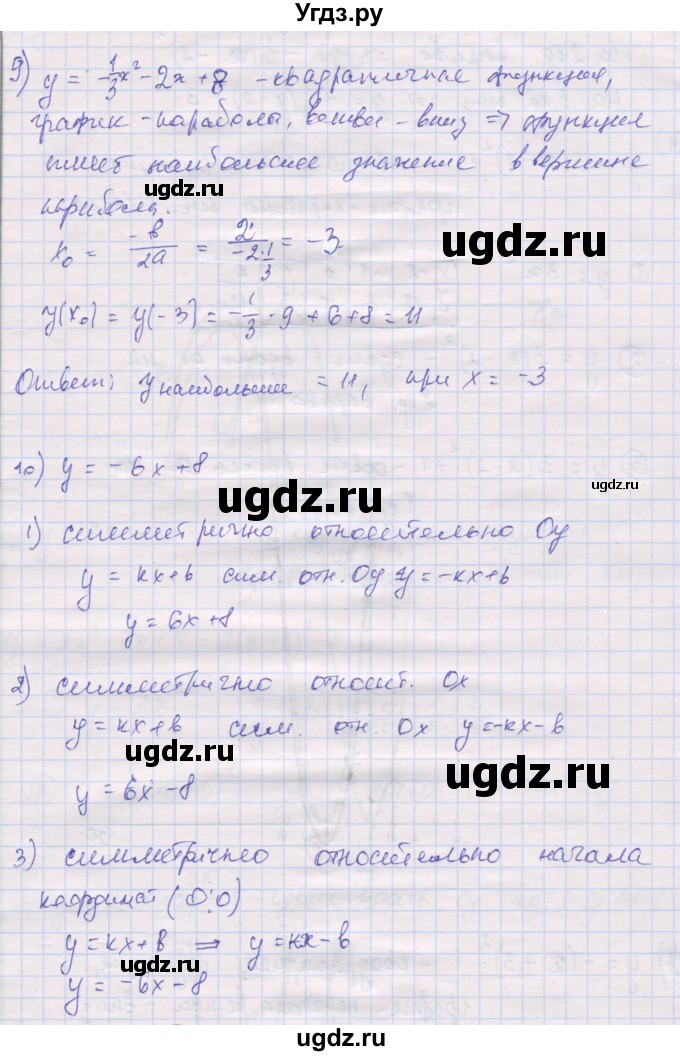 Угдз.ру
9) y = -1/3x² - 2x + 8 - квадратичная функция,
график - парабола, ветви - вниз ⇒ функция
имеет наибольшее значение в вершине
параболы.
x₀ = -b/2a = 2/(-2·1/3) = -3
y(x₀) = y(-3) = -1/3·9 + 6 + 8 = 11
Ответ: y наибольшее = 11, при x = -3
10) y = -6x + 8
1) симметрично относительно Oy
y = kx + b сим. отн. Oy y = -kx + b
y = 6x + 8
2) симметрично относит. Ox
y = kx + b сим. отн. Ox y = -kx - b
y = 6x - 8
3) симметрично относительно начала
координат (0;0)
y = kx + b ⇒ y = kx - b
y = -6x - 8
ugdz.ru
ugdz.ru
ugdz.ru
ugdz.ru
ugdz.ru
ugdz.ru
ugdz.ru
ugdz.ru
ugdz.ru
ugdz.ru